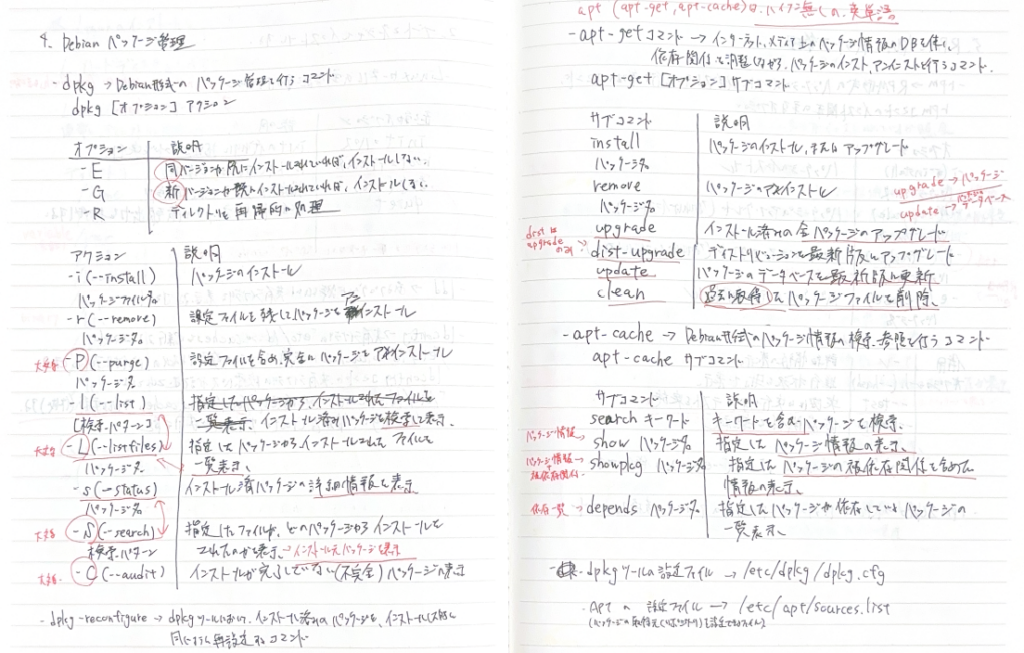 4. Debian パッケージ管理
- dpkg → Debian形式の パッケージ管理を行うコマンド
dpkg [オプション] アクション
オプション 説明
-E 同バージョンが既にインストールされていれば、インストールしない.
-G 新バージョンが既にインストールされていれば、インストールしない.
-R ディレクトリを再帰的に処理
アクション 説明
-i (--install) パッケージのインストール
パッケージファイル名
-r (--remove) 設定ファイルを残してパッケージをアンインストール
パッケージ名
大文字 -P (--purge) 設定ファイルを含め、完全にパッケージをアンインストール
パッケージ名
-l (--list) 指定したパッケージから、インストールされたファイルを
[検索パターン] 一覧表示、インストール済みパッケージを検索して表示
大文字 -L (--listfiles) 指定したパッケージからインストールされたファイルを
パッケージ名 一覧表示.
-s (--status) インストール済パッケージの詳細情報を表示.
パッケージ名
大文字 -S (--search) 指定したファイルが、どのパッケージからインストールを
検索パターン されたのかを表示. → インストール元パッケージを表示
大文字 -C (--audit) インストールが完了していない(不完全)パッケージの表示
- dpkg-reconfigure → dpkgツールにおいて、インストール済みのパッケージを、インストール時と
同じように再設定するコマンド
apt (apt-get, apt-cache)は、ハイフン無しの、英単語
- apt-getコマンド → インターネット、メディア上のパッケージ情報のDBを使い、
依存関係を調整しながら、パッケージのインスト、アンインストを行うコマンド.
apt-get [オプション] サブコマンド
サブコマンド 説明
install パッケージのインストール、または アップグレード
パッケージ名
remove パッケージのアンインストール
パッケージ名
upgrade → パッケージ
update → パッケージのデータベース
upgrade インストール済みの全パッケージのアップグレード
distは upgradeのみ? dist-upgrade ディストリビューションを最新版にアップグレード
update パッケージのデータベースを最新版に更新
clean 過去に取得したパッケージファイルを削除.
- apt-cache → Debian形式でのパッケージ情報の検索、参照を行うコマンド
apt-cache サブコマンド
サブコマンド 説明
search キーワード キーワードを含むパッケージを検索.
パッケージ情報 → show パッケージ名 指定したパッケージ情報の表示.
パッケージ情報 + 被依存関係 → showpkg パッケージ名 指定したパッケージの被依存関係を含めた
情報の表示.
依存一覧 → depends パッケージ名 指定したパッケージが依存しているパッケージの
一覧表示.
- dpkgツールの設定ファイル → /etc/dpkg/dpkg.cfg
. Aptの設定ファイル → /etc/apt/sources.list